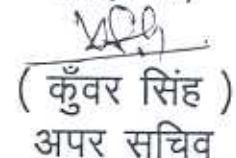 ( कुँवर सिंह )
अपर सचिव